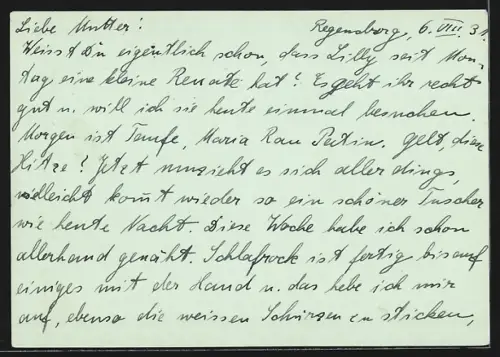 Liebe Mutter! Regensburg, 6. VIII. 31.
Weisst Du eigentlich schon, dass Lilly seit Mon-
tag eine kleine Renate hat? Es geht ihr recht
gut u. will ich sie heute einmal besuchen.
Morgen ist Taufe, Maria Rau Patin. Gelt, diese
Hitze? Jetzt umzieht es sich allerdings,
vielleicht komt wieder so ein schöner Tuscher
wie heute Nacht. Diese Woche habe ich schon
allerhand genäht. Schlafrock ist fertig bis auf
einiges mit der Hand u. das hebe ich mir
auf, ebenso die weissen Schürzen zu sticken,